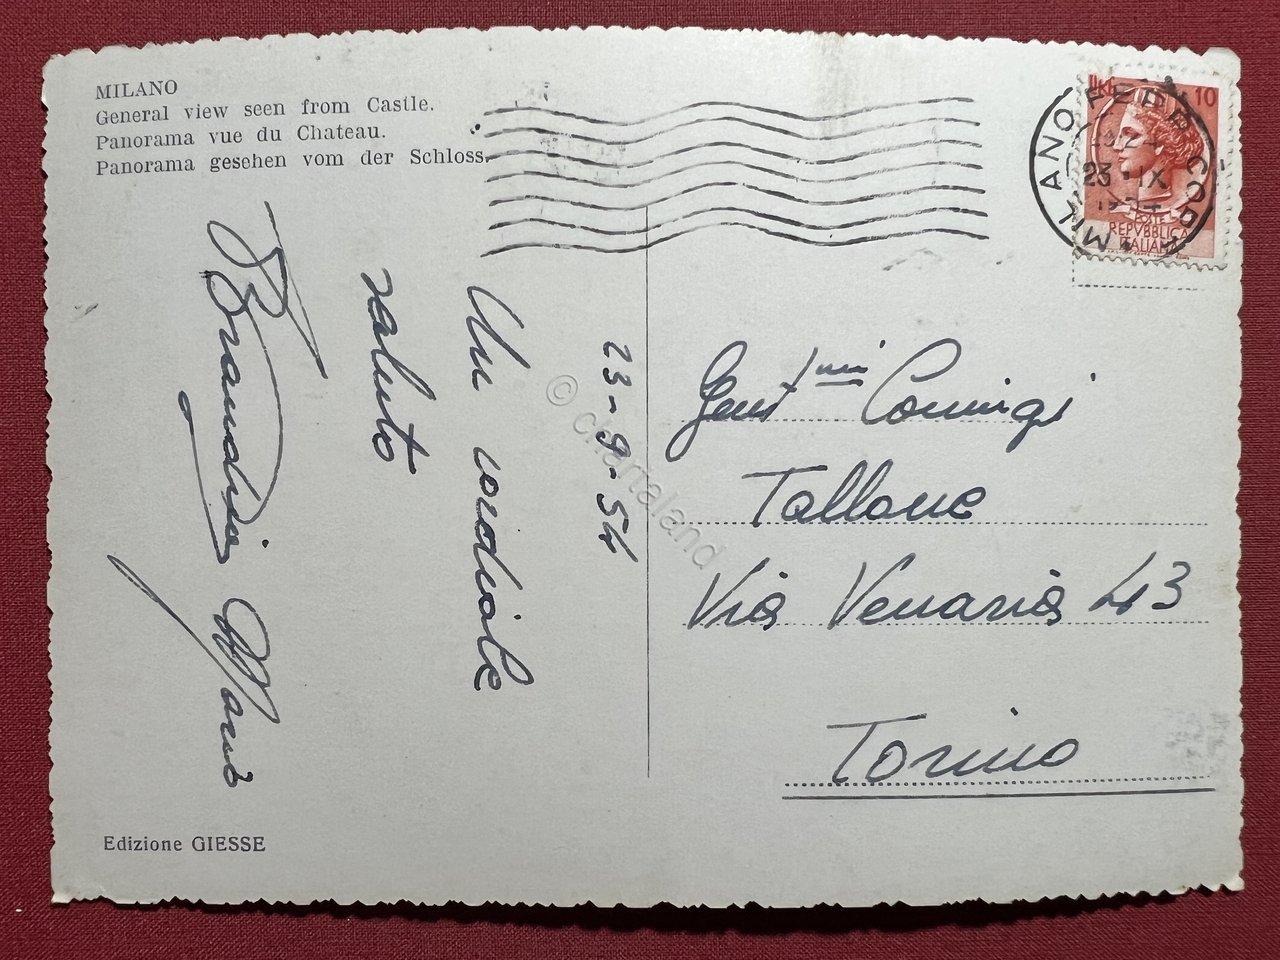 MILANO
General view seen from Castle.
Panorama vue du Chateau.
Panorama gesehen vom der Schloss.
10
POSTE
REPVBBLICA
ITALIANA
MILANO FERR. CORR.
23 IX
23-9-54
Un cordiale
saluto
Maria
Gent mi Coniugi
Tallone
Via Venaria 43
Torino
Edizione GIESSE
© chartaland